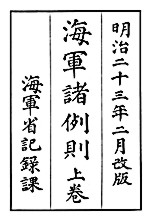 明治二十三年二月改版
海軍諸例則 上巻
海軍省記録課